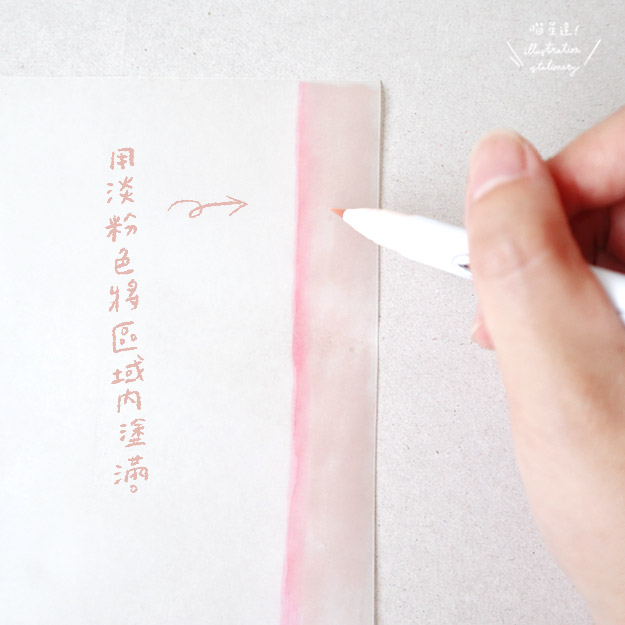 喵星逵!
illustration
stationery
用淡粉色將區域內塗滿。